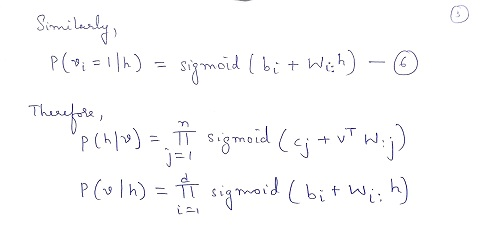 5
Similarly,
P(v_i = 1|h) = sigmoid (b_i + W_{i:} h) — ⑥
Therefore,
P(h|v) = ∏_{j=1}^{n} sigmoid (c_j + v^T W_{:j})
P(v|h) = ∏_{i=1}^{d} sigmoid (b_i + W_{i:} h)